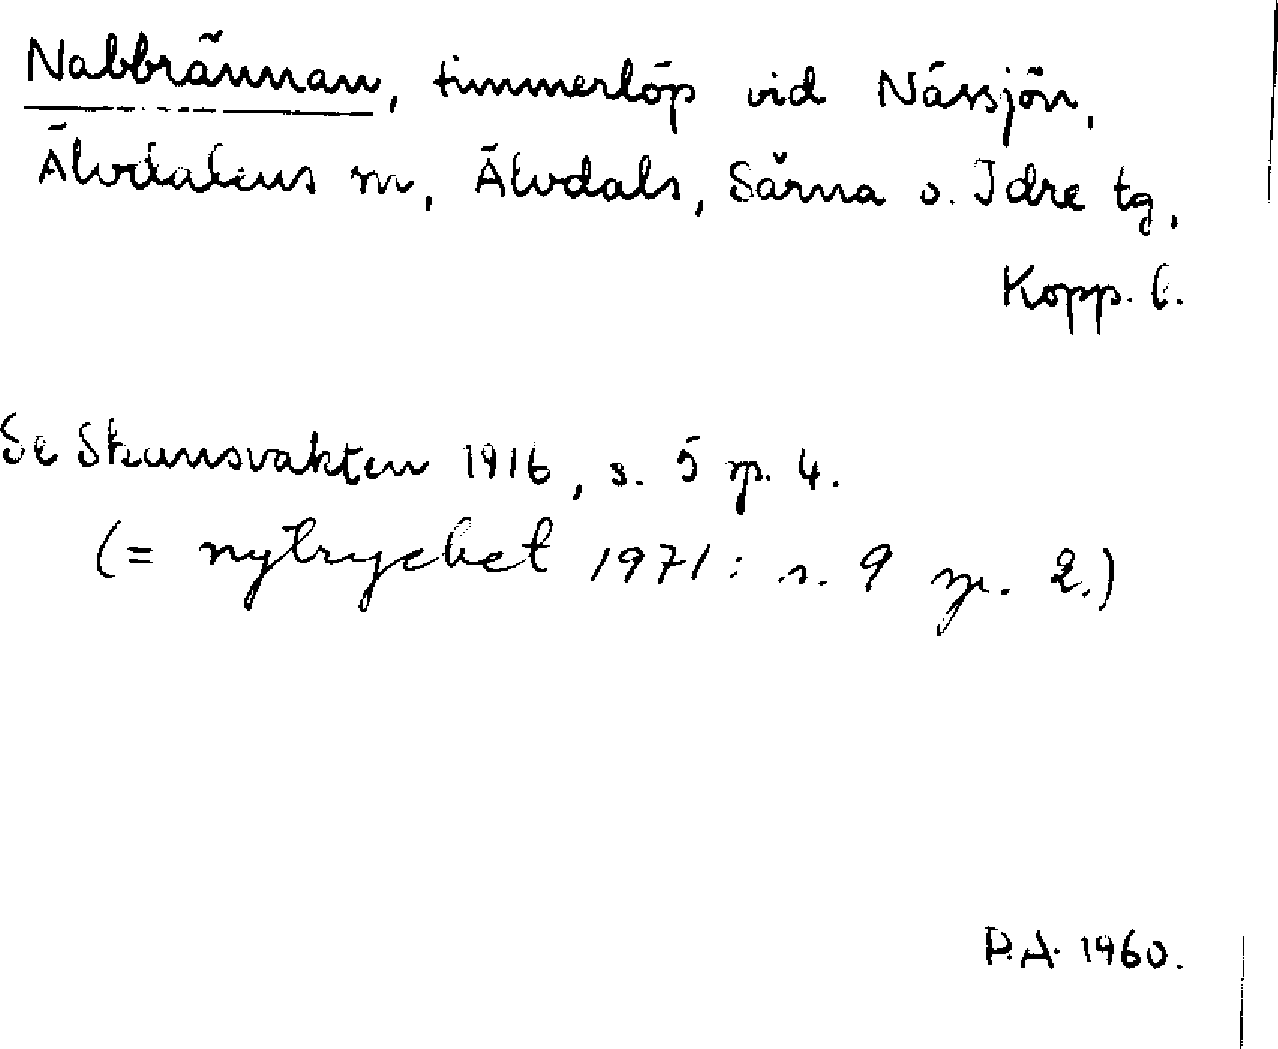 Nabbrännan, timmerlöp vid Nässjön,
Älvdalens m, Älvdals, Särna o. Idre tg,
Kopp. l.
Se Skansvakten 1916, s. 5 sp. 4.
(= nytrycket 1971: s. 9 sp. 2.)
P.A. 1960.